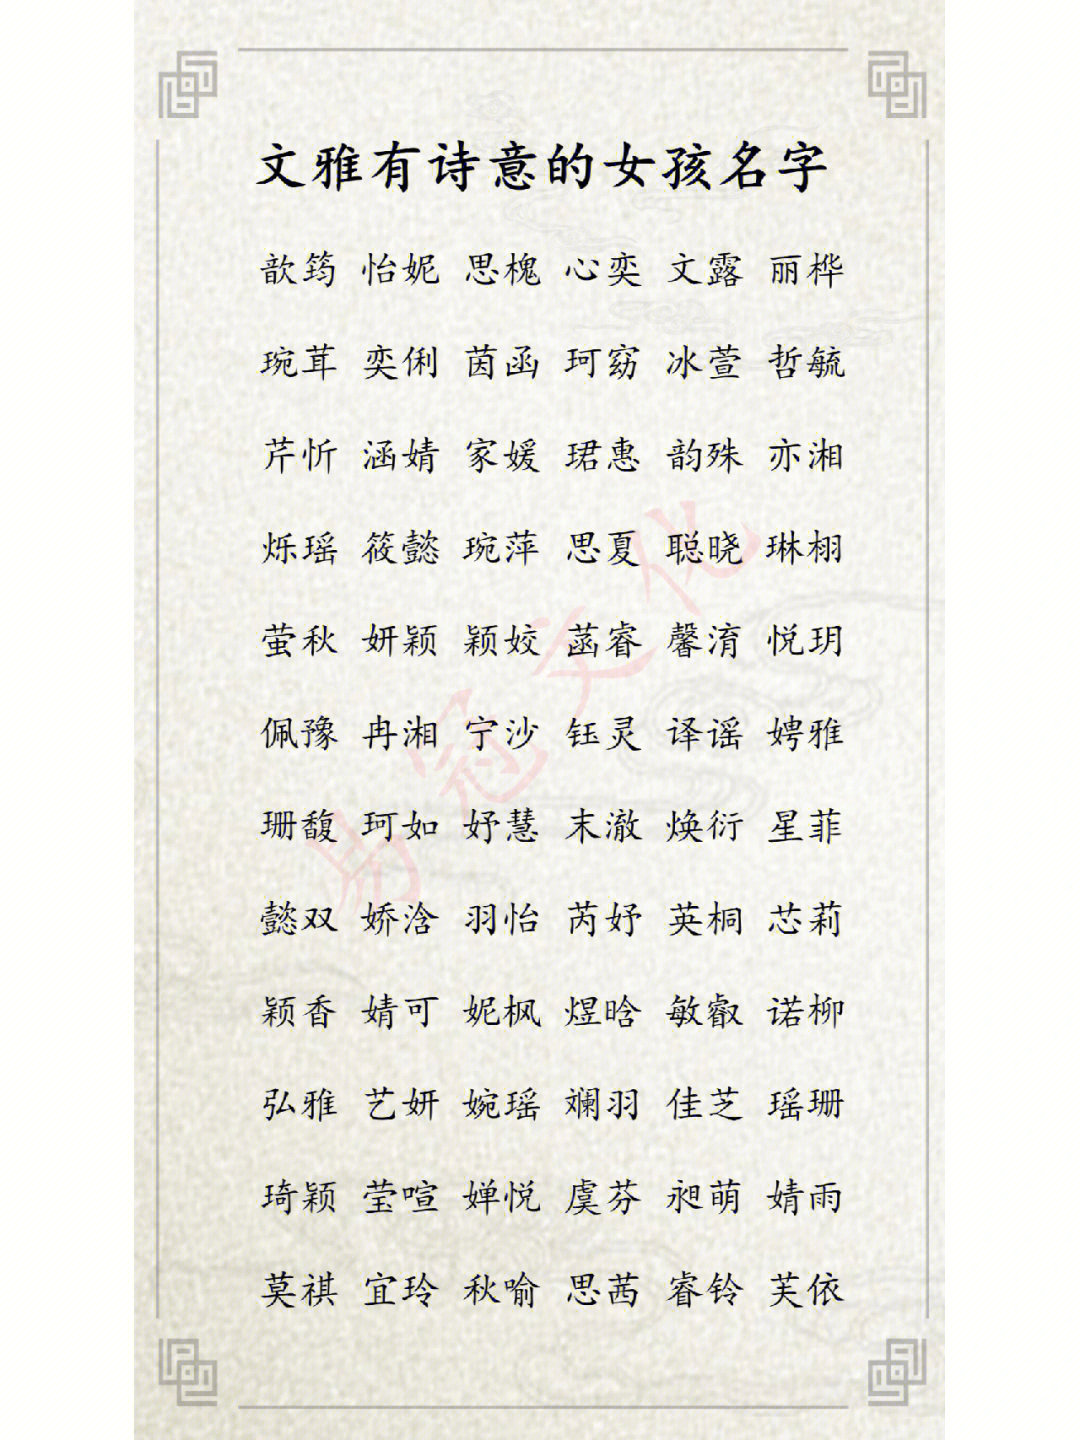 文雅有诗意的女孩名字
歆筠 怡妮 思槐 心奕 文露 丽桦
琬茸 奕俐 茵函 珂窈 冰萱 哲毓
芹忻 涵婧 家媛 珺惠 韵殊 亦湘
烁瑶 筱懿 琬萍 思夏 聪晓 琳栩
萤秋 妍颖 颖姣 菡睿 馨淯 悦玥
佩豫 冉湘 宁沙 钰灵 译谣 娉雅
珊馥 珂如 妤慧 末澈 焕衍 星菲
懿双 娇浛 羽怡 芮妤 英桐 芯莉
颖香 婧可 妮枫 煜晗 敏叡 诺柳
弘雅 艺妍 婉瑶 斓羽 佳芝 瑶珊
琦颖 莹喧 婵悦 虞芬 昶萌 婧雨
莫祺 宜玲 秋喻 思茜 睿铃 芙依
冠文化